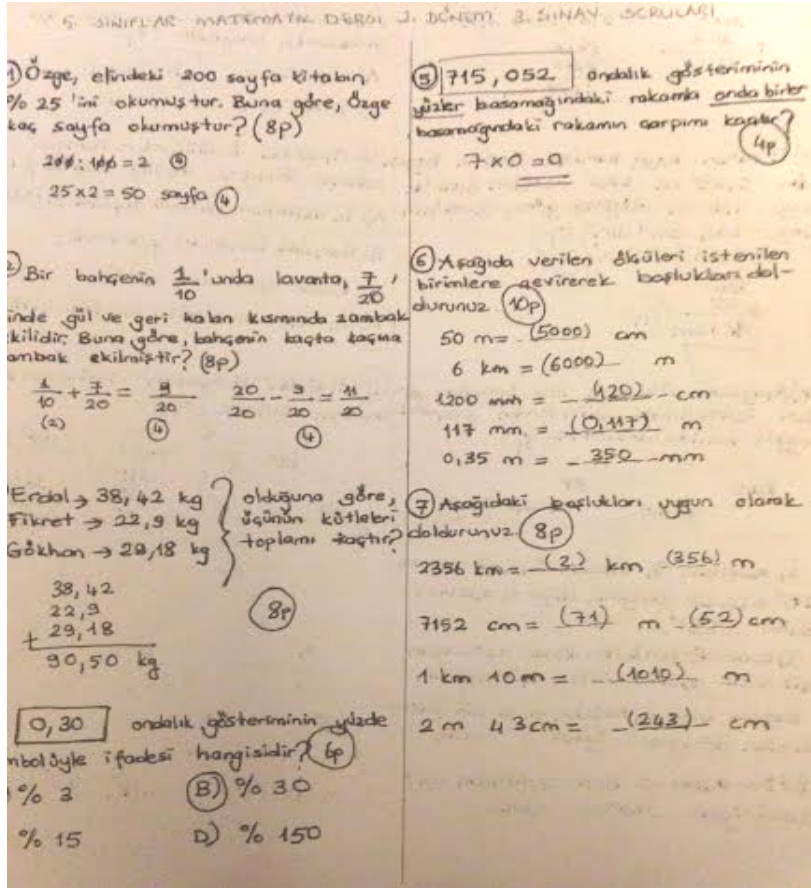 5. SINIFLAR MATEMATİK DERSİ 2. DÖNEM 3. SINAV SORULARI
1) Özge, elindeki 200 sayfa kitabın
% 25 'ini okumuştur. Buna göre, Özge
kaç sayfa okumuştur? (8p)
200 : 100 = 2 (4)
25 x 2 = 50 sayfa (4)
2) Bir bahçenin 1/10 'unda lavanta, 7/20 '
inde gül ve geri kalan kısmında zambak
kilidir. Buna göre, bahçenin kaçta kaçına
ambak ekilmiştir? (8p)
1/10 + 7/20 = 9/20 20/20 - 9/20 = 11/20
(2) (4) (4)
Erdal → 38,42 kg
Fikret → 22,9 kg
Gökhan → 29,18 kg
olduğuna göre,
üçünün kütleleri
toplamı kaçtır?
(8p)
38,42
22,9
+ 29,18
90,50 kg
0,30 ondalık gösteriminin yüzde
mbolüyle ifadesi hangisidir? (6p)
) % 3 B) % 30
% 15 D) % 150
(5) 715,052 ondalık gösteriminin
yüzler basamağındaki rakamla onda birler
basamağındaki rakamın çarpımı kaçtır?
4p
7 x 0 = 0
(6) Aşağıda verilen ölçüleri istenilen
birimlere çevirerek boşlukları dol-
durunuz. (10p)
50 m = (5000) cm
6 km = (6000) m
1200 mm = (120) cm
117 mm. = (0,117) m
0,35 m = 350 mm
(7) Aşağıdaki boşlukları uygun olarak
doldurunuz. (8p)
2356 km = (2) km (356) m
7152 cm = (71) m (52) cm
1 km 10 m = (1010) m
2 m 43 cm = (243) cm